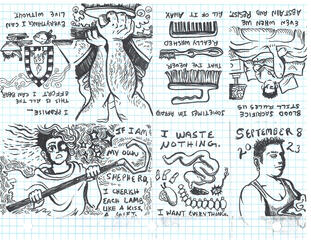 SEPTEMBER 8
20 23
BLOOD SACRIFICE
STILL RULES US
EVEN WHEN WE
ABSTAIN AND RESIST
SOMETIMES I'M AFRAID
THAT I'VE NEVER
REALLY WASHED
ALL OF IT AWAY
I PROMISE
THIS IS ALL THE
EFFORT I CAN BEAR
EVERYTHING I CAN
LIVE WITHOUT
IF I AM
MY OWN
SHEPHERD,
I CHERISH
EACH LAMB
LIKE A KISS,
A GIFT.
I WASTE
NOTHING.
I WANT EVERYTHING.